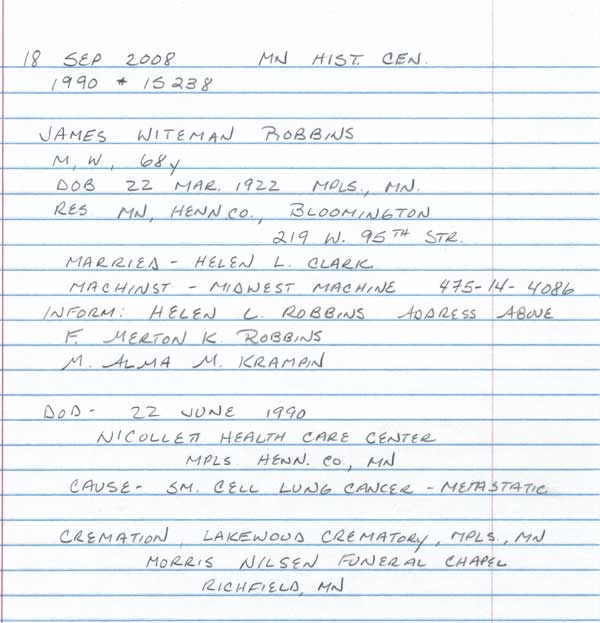 18 SEP 2008 MN HIST. CEN.
1990 * 15238
JAMES WITEMAN ROBBINS
M, W, 68y
DOB 22 MAR. 1922 MPLS., MN.
RES MN, HENN.CO., BLOOMINGTON
219 W. 95TH STR.
MARRIED - HELEN L. CLARK
MACHINST - MIDWEST MACHINE 475-14-4086
INFORM: HELEN L. ROBBINS ADDRESS ABOVE
F. MERTON K. ROBBINS
M. ALMA M. KRAMPIN
DOD - 22 JUNE 1990
NICOLLETT HEALTH CARE CENTER
MPLS. HENN. CO, MN
CAUSE - SM. CELL LUNG CANCER - METASTATIC
CREMATION, LAKEWOOD CREMATORY, MPLS., MN
MORRIS NILSEN FUNERAL CHAPEL
RICHFIELD, MN